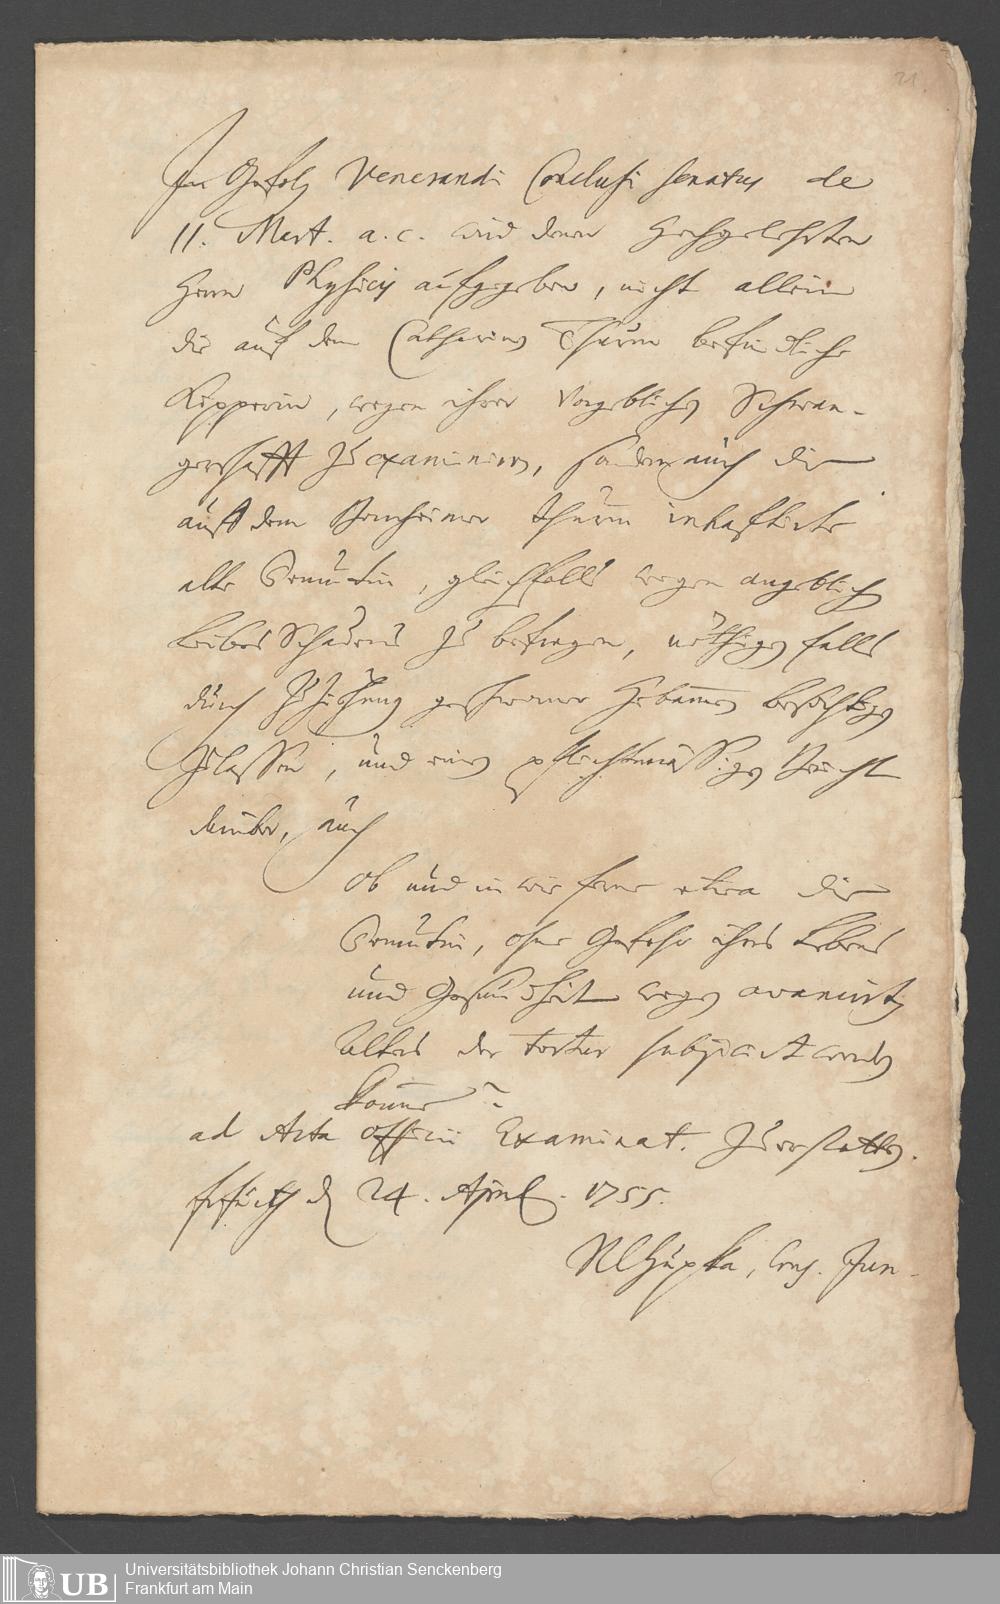 21.
In Gefolg Venerandi Conclusi Senatus de
11. Mart. a. c. wird denen Hochgelehrten
Herrn Physicis aufgegeben, nicht allein
die auf dem Catharinen Thurm befindliche
wegen ihrer vorgeblichen Schwan-
gerschafft zu examiniren, sondern auch die
auff dem Bornheimer Thurm inhafftirte
alte gleichfalls wegen angeblich
Leibes Schadens zu befragen, nöthigen falls
durch Zuziehung geschworner Hebammen besichtigen
zu lassen, und einen pflichtmässigen Bericht
darüber, auch
ob und in wie ferne etwa die
ohne Gefahr ihres Lebens
und Gesundheit wegen avancirten
Alters der Tortur subjicirt werden
könne?
ad Acta officii Examinat. zu erstatten.
Frfurth d 24. April. 1755.
Cons. Jun.
Universitätsbibliothek Johann Christian Senckenberg
Frankfurt am Main
UB